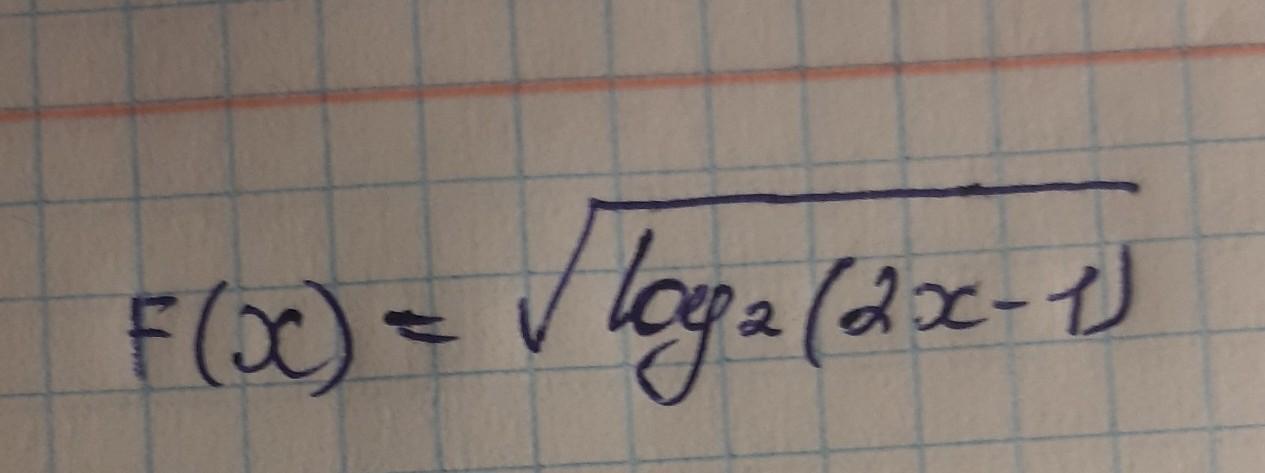 F(x) = √log₂(2x-1)